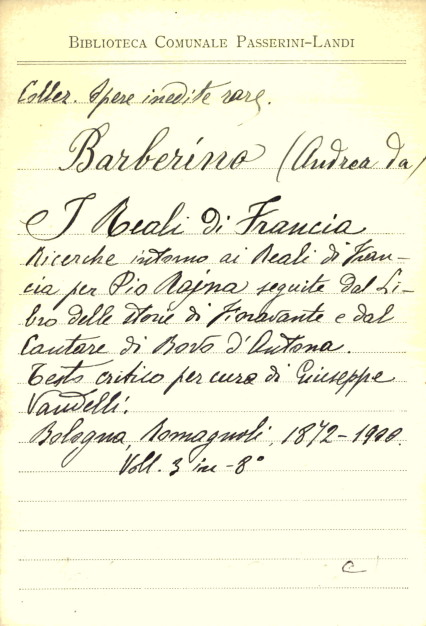 BIBLIOTECA COMUNALE PASSERINI-LANDI
Collez. Opere inedite rare.
Barberino (Andrea da)
I Reali di Francia
Ricerche intorno ai Reali di Fran-
cia per Pio Rajna seguite dal Li-
bro delle storie di Fioravante e dal
Cantare di Bovo d'Antona.
Testo critico per cura di Giuseppe
Vandelli.
Bologna, Romagnoli, 1872-1900.
Voll. 3 in-8°
C